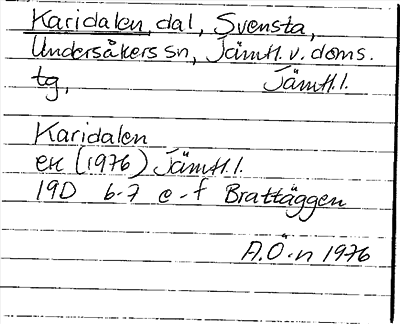 Karidalen, dal, Svensta,
Undersåkers sn, Jämtl. v. doms.
tg, Jämtl.l.
Karidalen
ek (1976) Jämtl.l.
19D 6-7 e-f Brattäggen
A.Ö-n 1976